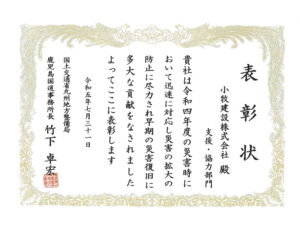 表彰状
支援・協力部門
小牧建設株式会社 殿
貴社は令和四年度の災害時に
おいて迅速に対応し災害の拡大の
防止に尽力され早期の災害復旧に
多大な貢献をなされました
よってここに表彰します
令和五年七月三十一日
国土交通省九州地方整備局
鹿児島国道事務所長 竹下 卓宏